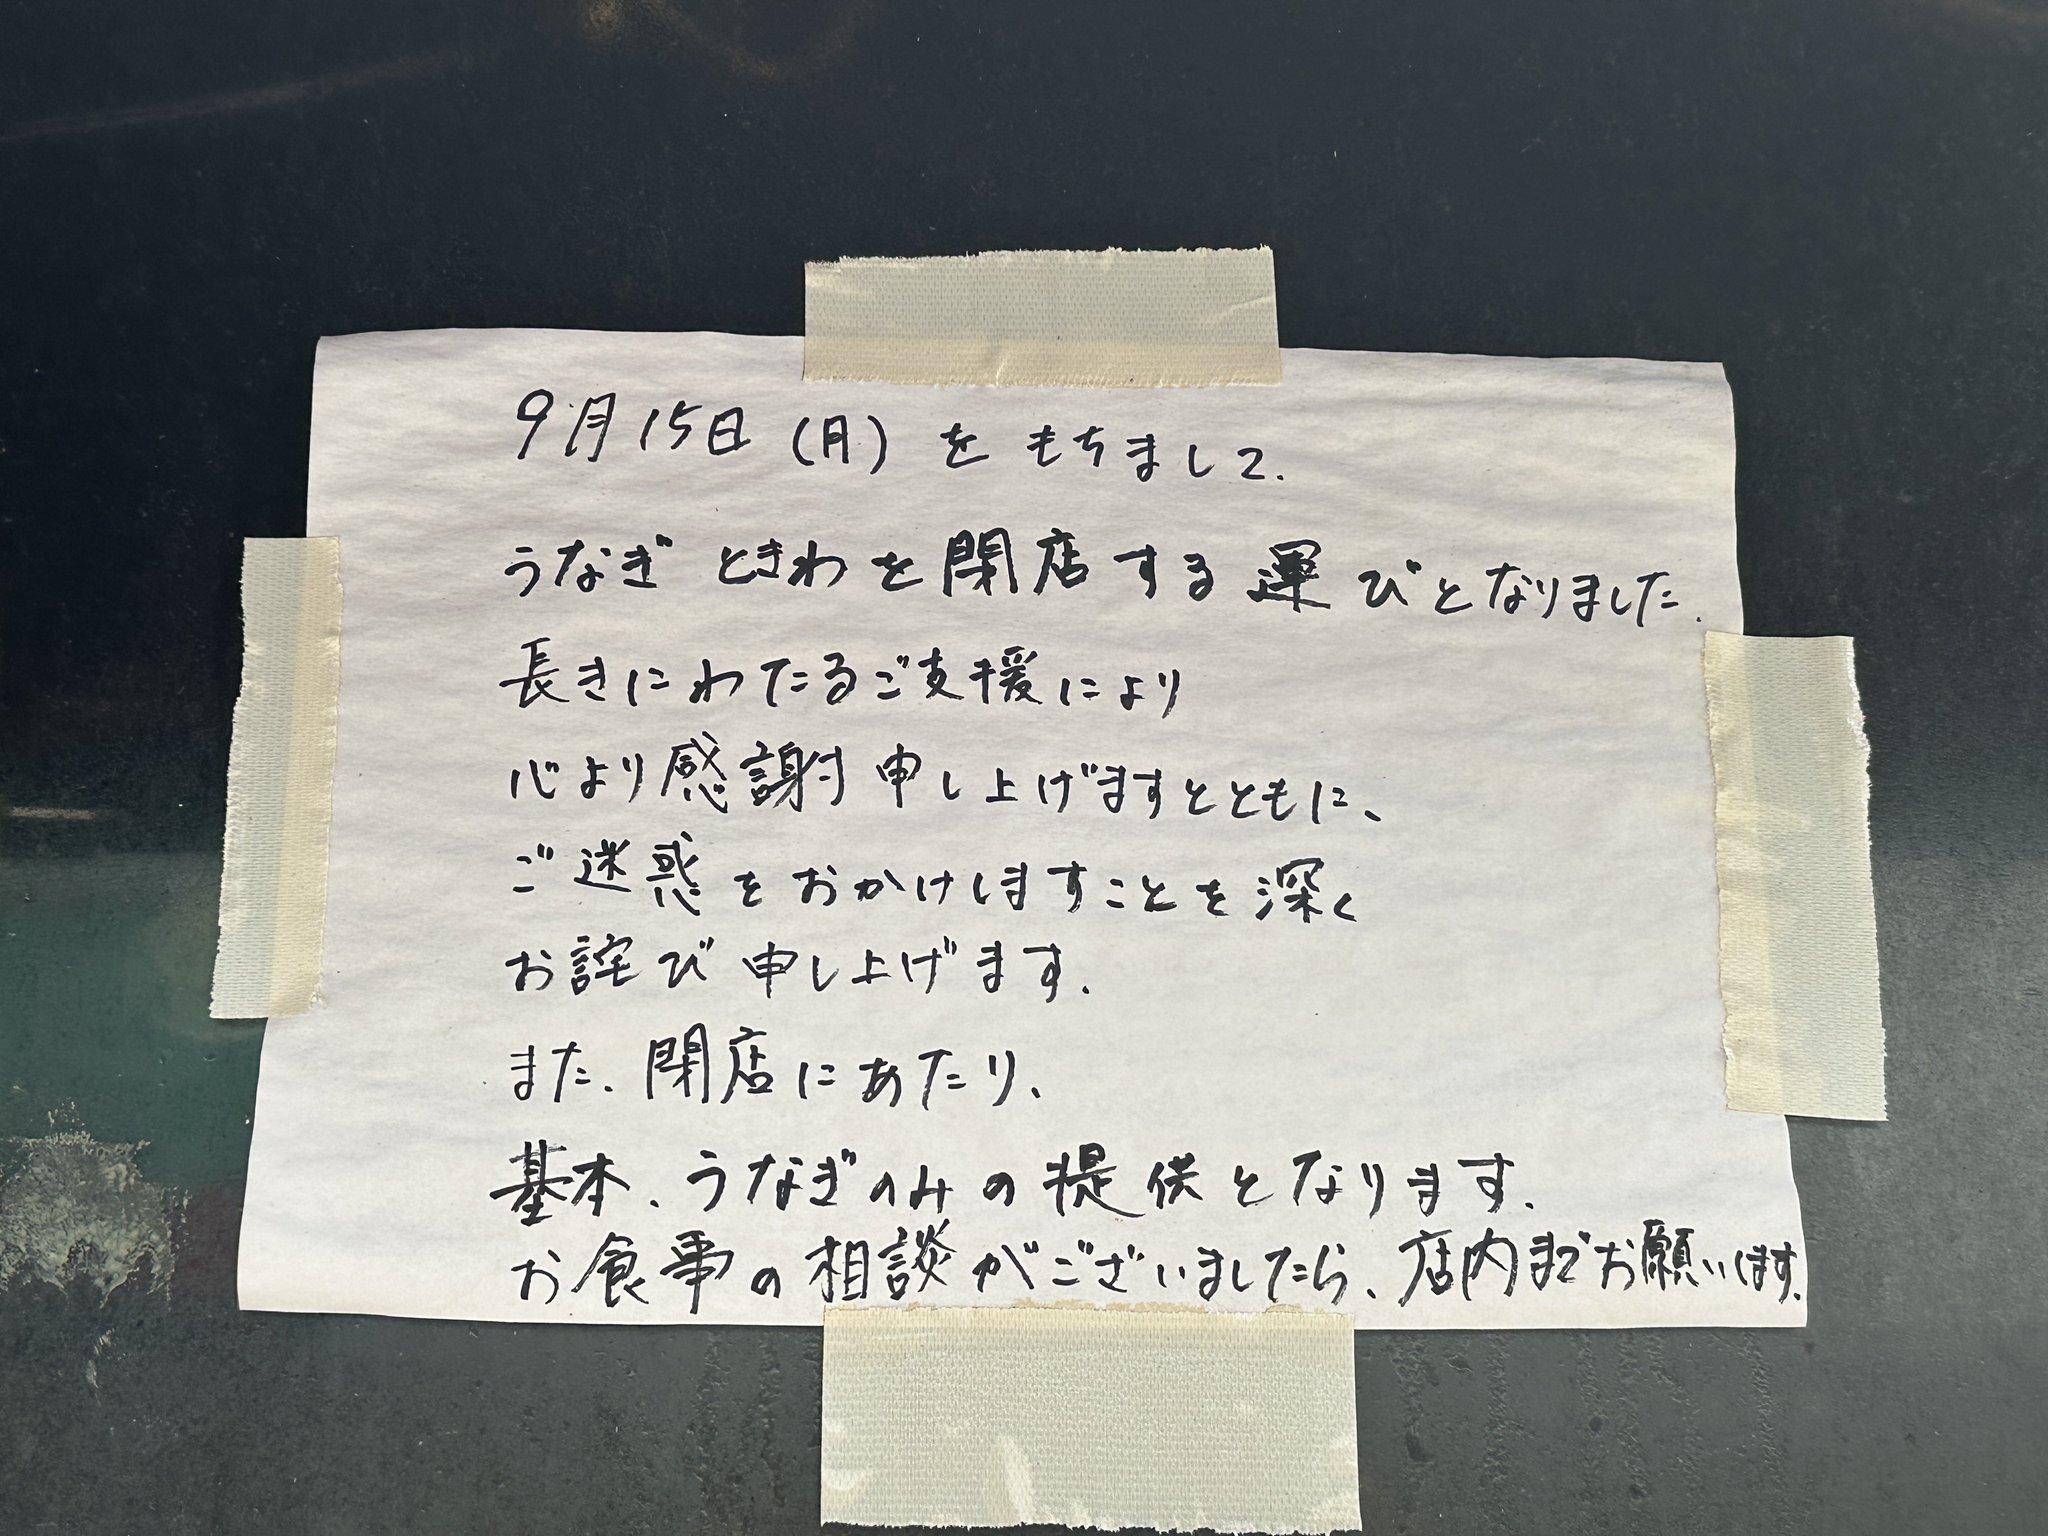 9月15日(月)をもちまして.
うなぎ ときわを閉店する運びとなりました.
長きにわたるご支援により
心より感謝申し上げますとともに、
ご迷惑をおかけしますことを深く
お詫び申し上げます.
また、閉店にあたり、
基本、うなぎのみの提供となります.
お食事の相談がございましたら、店内までお願いします.